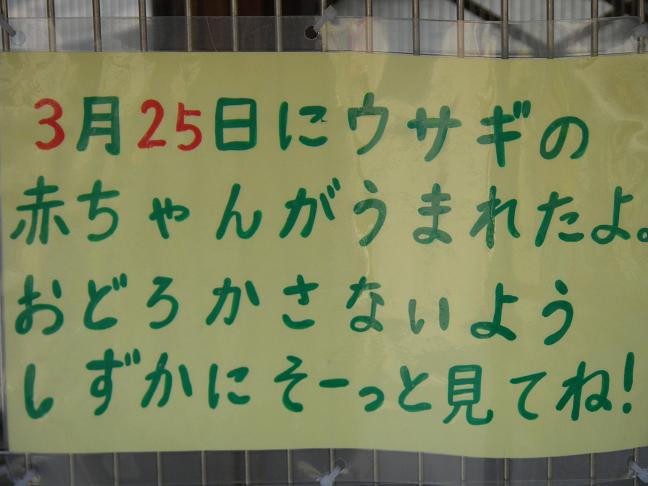 3月25日にウサギの
赤ちゃんがうまれたよ。
おどろかさないよう
しずかにそーっと見てね!